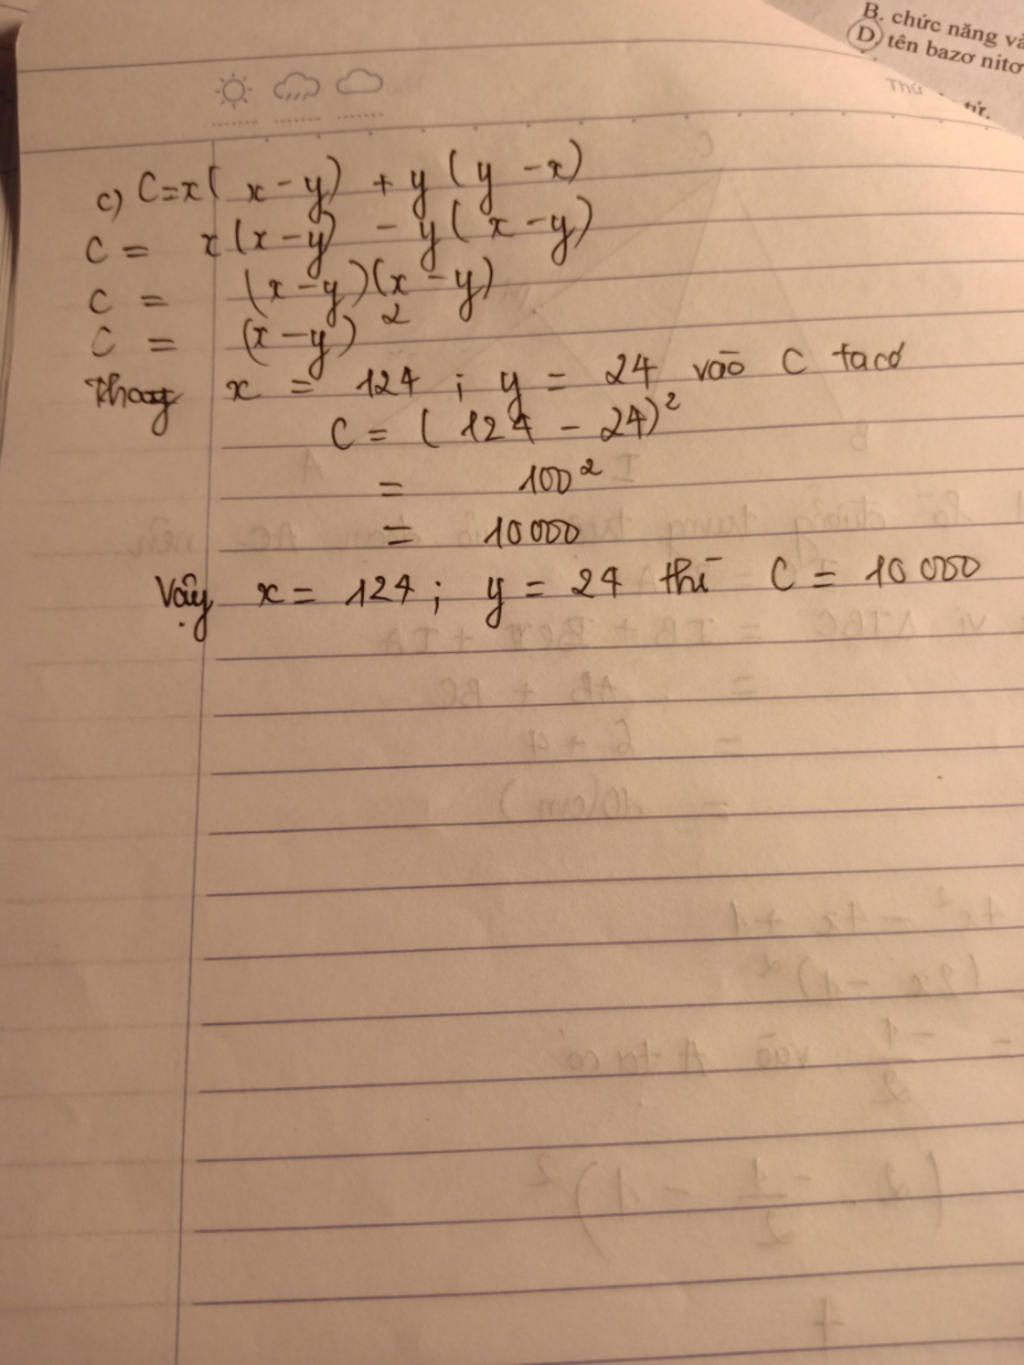 B. chức năng và
D tên bazơ nitơ
Thứ
tử.
c) C=x( x-y) + y(y-x)
C = x(x-y) - y(x-y)
C = (x-y)(x-y)
C = (x-y)²
Thay x = 124 ; y = 24 vào C ta có
C = ( 124 - 24)²
= 100²
= 10000
Vậy x = 124 ; y = 24 thì C = 10 000